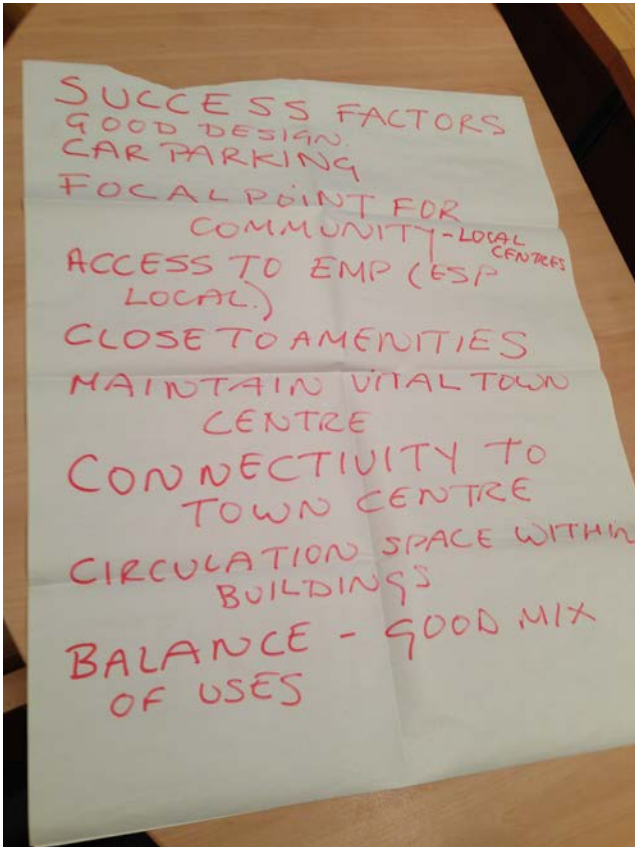 SUCCESS FACTORS
GOOD DESIGN.
CAR PARKING
FOCAL POINT FOR
COMMUNITY - LOCAL
CENTRES
ACCESS TO EMP (ESP
LOCAL.)
CLOSE TO AMENITIES
MAINTAIN VITAL TOWN
CENTRE
CONNECTIVITY TO
TOWN CENTRE
CIRCULATION SPACE WITHIN
BUILDINGS
BALANCE - GOOD MIX
OF USES